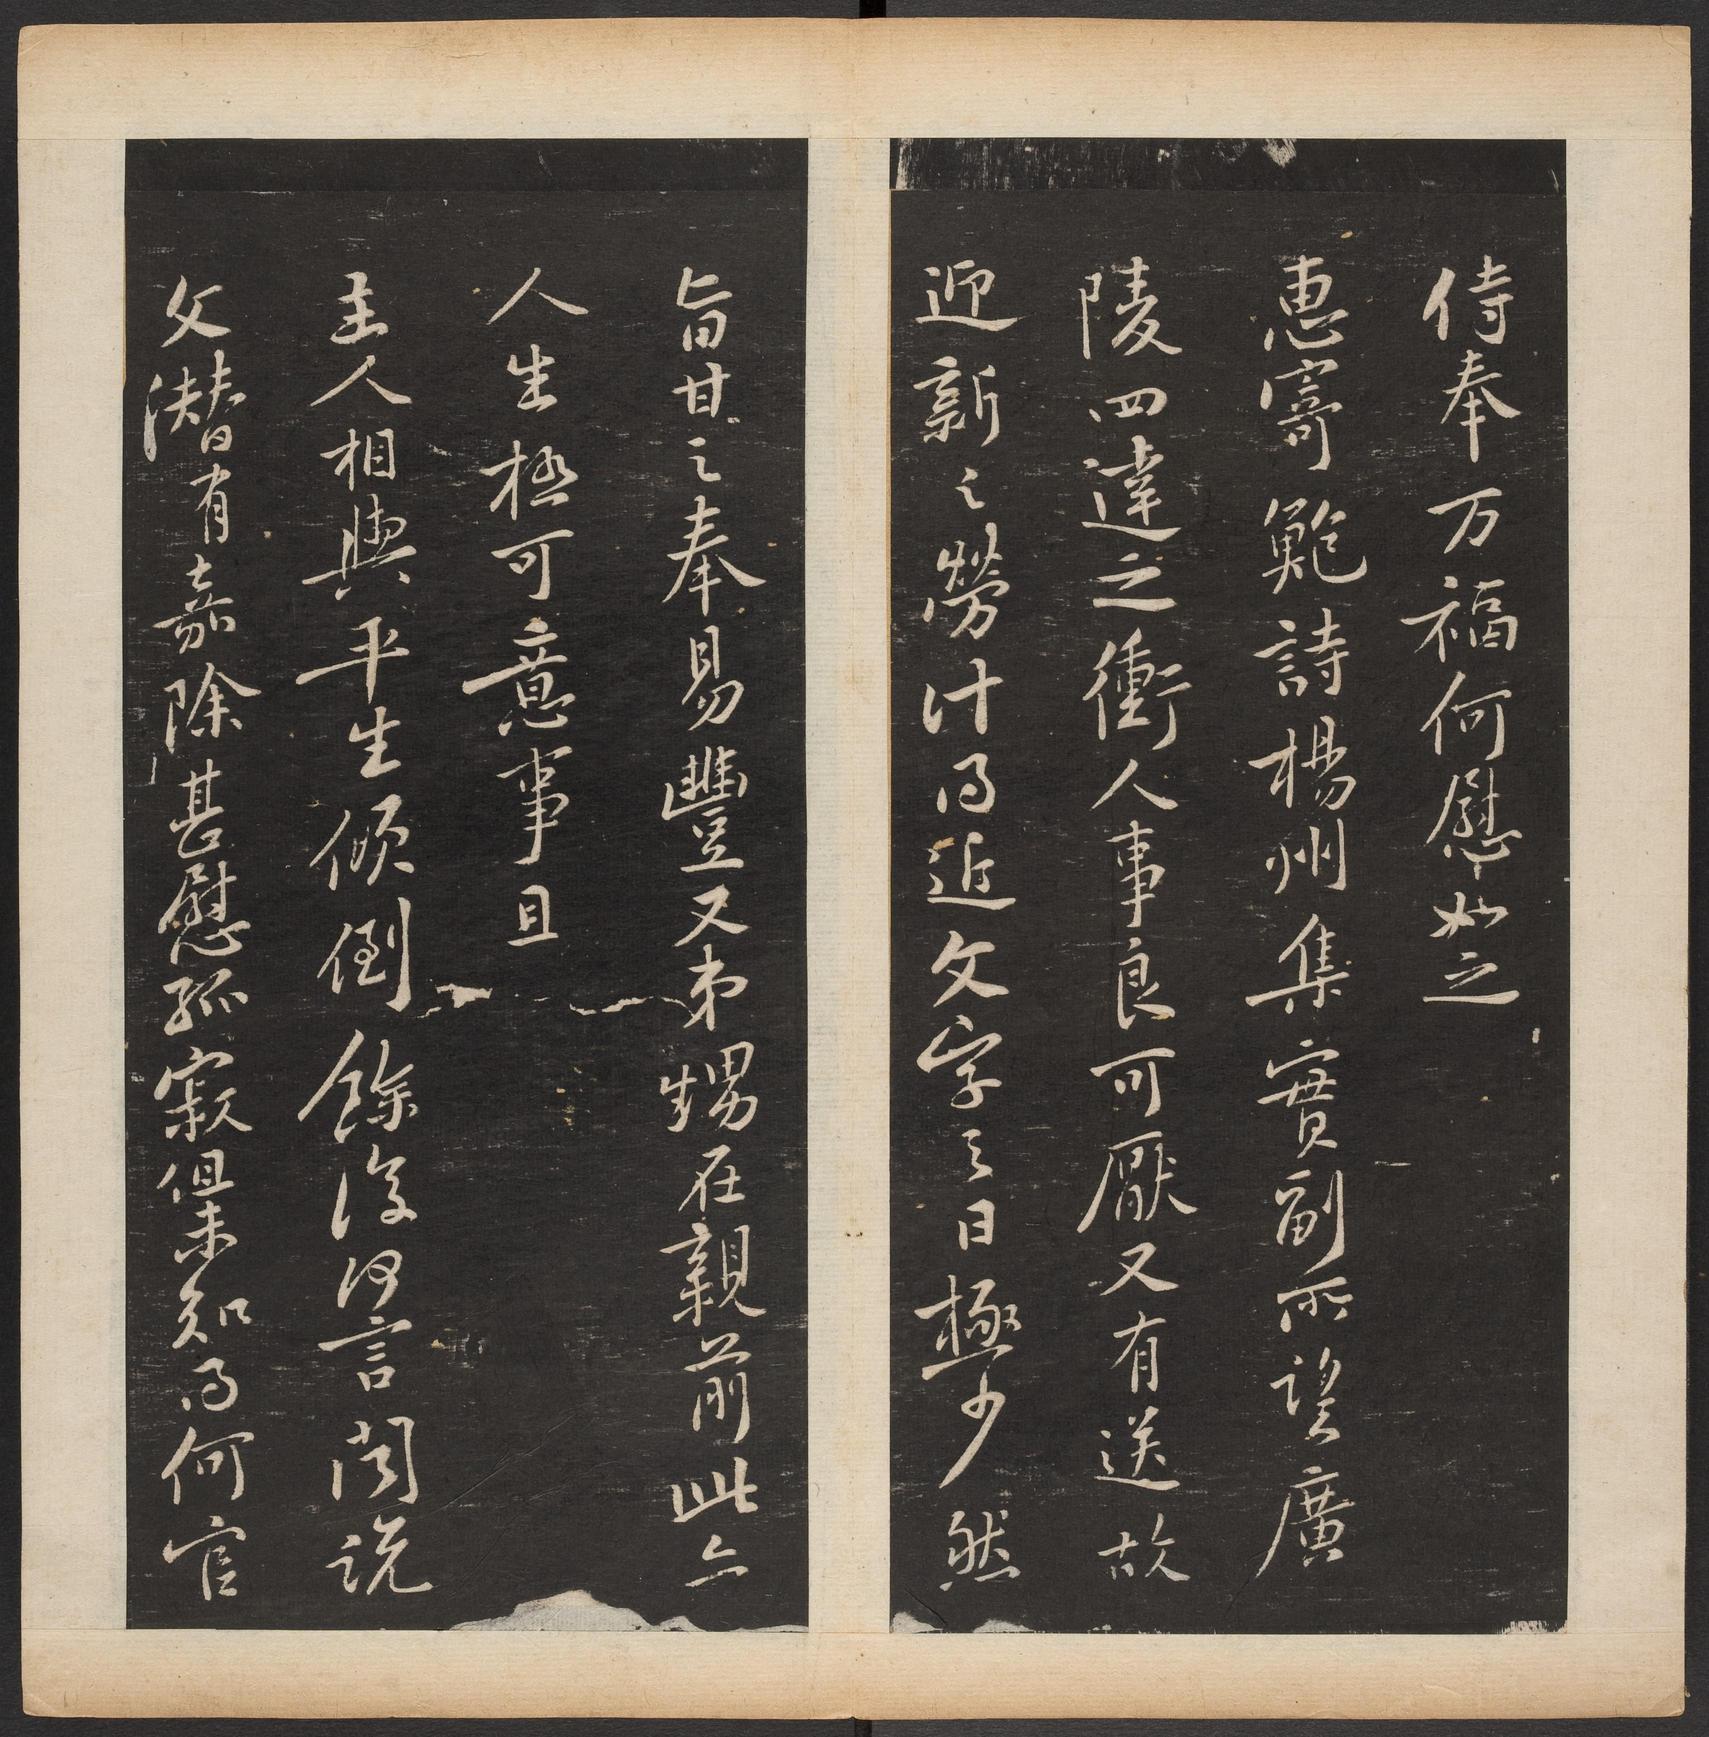 侍奉万福何慰如之
惠寄鮑詩楊州集實副所望廣
陵四達之衝人事良可厭又有送故
迎新之勞計得近文字之日極少然
旨甘之奉易豐又弟甥在親前此亦
人生極可意事且
主人相與平生傾倒餘復何言聞說
文潛有嘉除甚慰孤寂但未知得何官